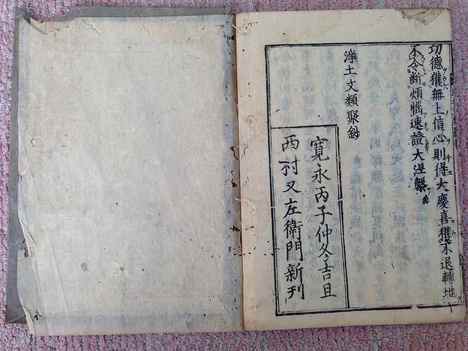 功德獲無上信心則得大慶喜獲不退轉地
不令斷煩惱速證大涅槃
淨土文類聚鈔
寬永丙子仲冬吉旦
西村又左衛門新刊